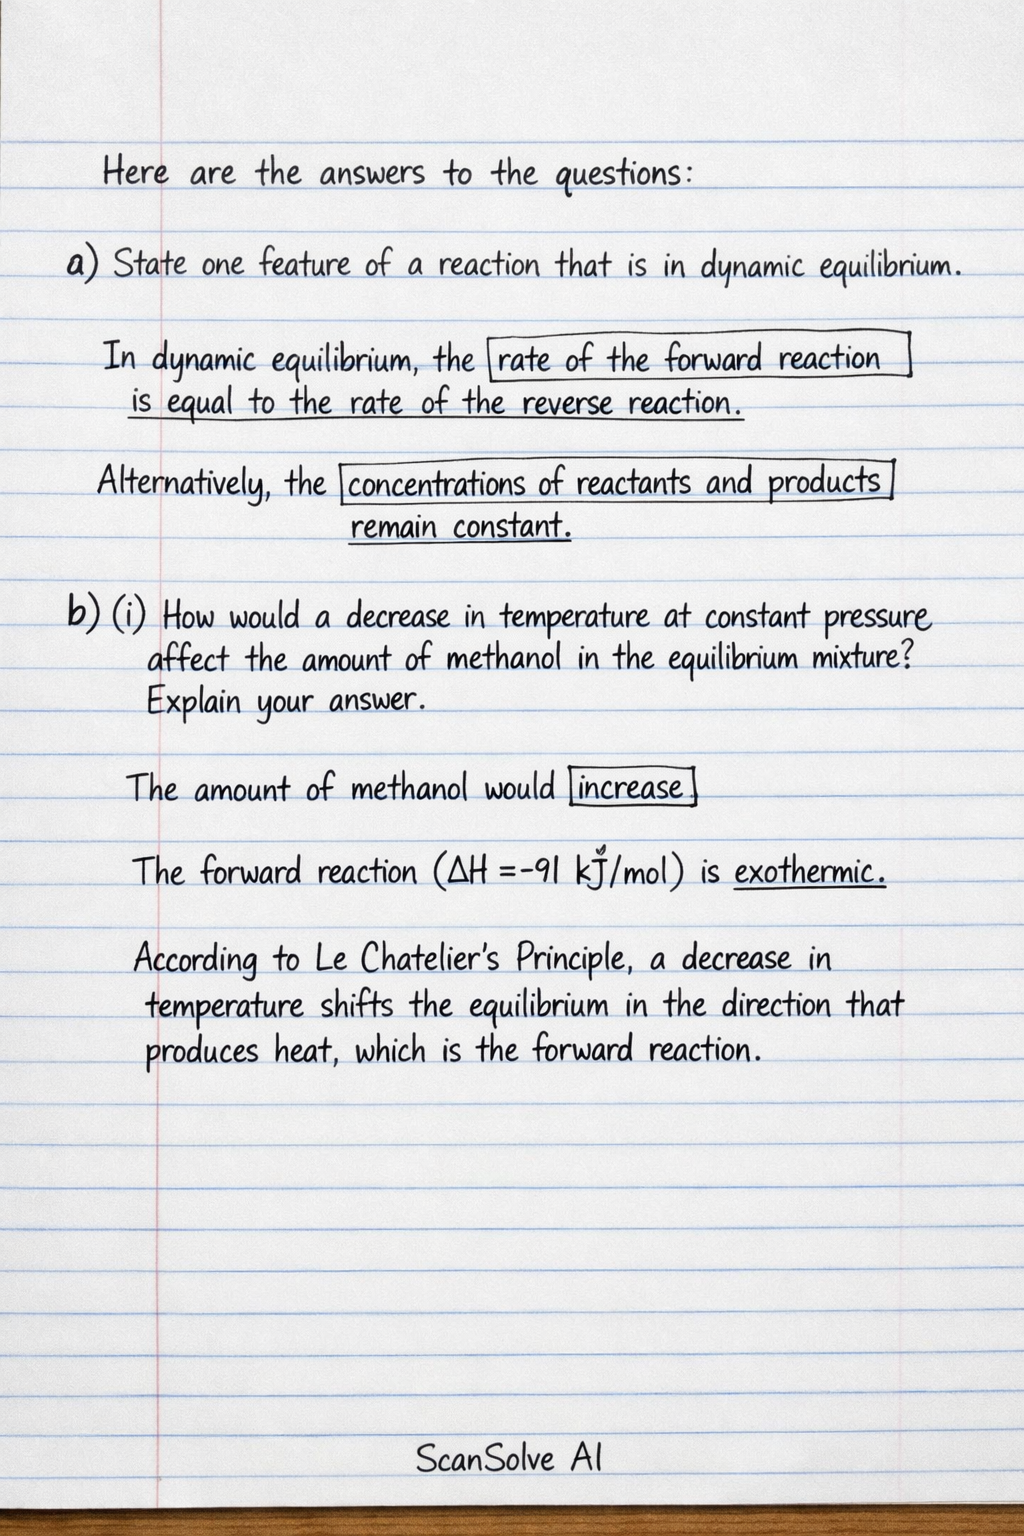 Here are the answers to the questions:
a) State one feature of a reaction that is in dynamic equilibrium.
In dynamic equilibrium, the rate of the forward reaction
is equal to the rate of the reverse reaction.
Alternatively, the concentrations of reactants and products
remain constant.
b) (i) How would a decrease in temperature at constant pressure
affect the amount of methanol in the equilibrium mixture?
Explain your answer.
The amount of methanol would increase.
The forward reaction (ΔH =-91 kJ/mol) is exothermic.
According to Le Chatelier's Principle, a decrease in
temperature shifts the equilibrium in the direction that
produces heat, which is the forward reaction.
ScanSolve AI